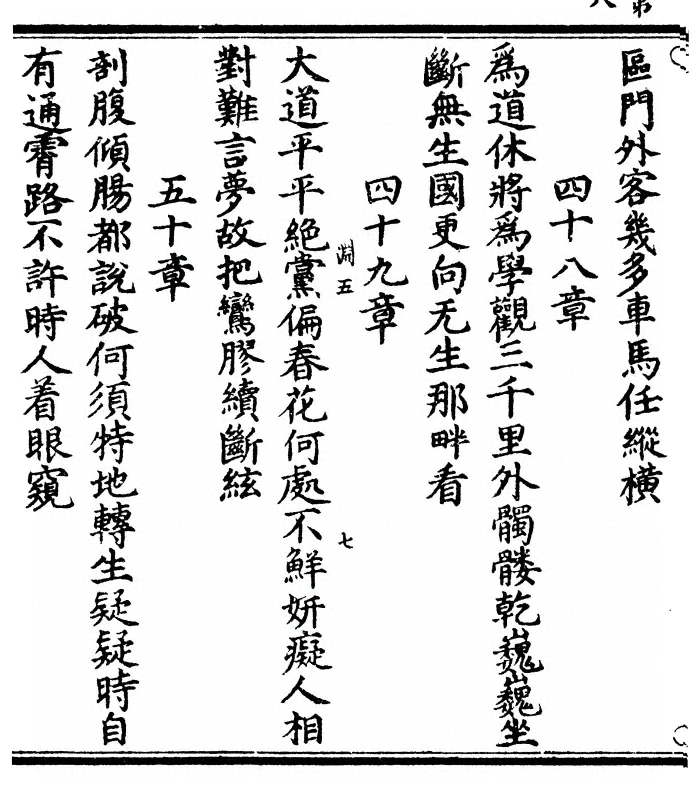 區門外客幾多車馬任縱橫
四十八章
爲道休將爲學觀三千里外髑髏乾巍巍坐
斷無生國更向无生那畔看
四十九章
淵五
七
大道平平絕黨偏春花何處不鮮妍癡人相
對難言夢故把鸞膠續斷絃
五十章
剖腹傾腸都說破何須特地轉生疑疑時自
有通霄路不許時人着眼窺